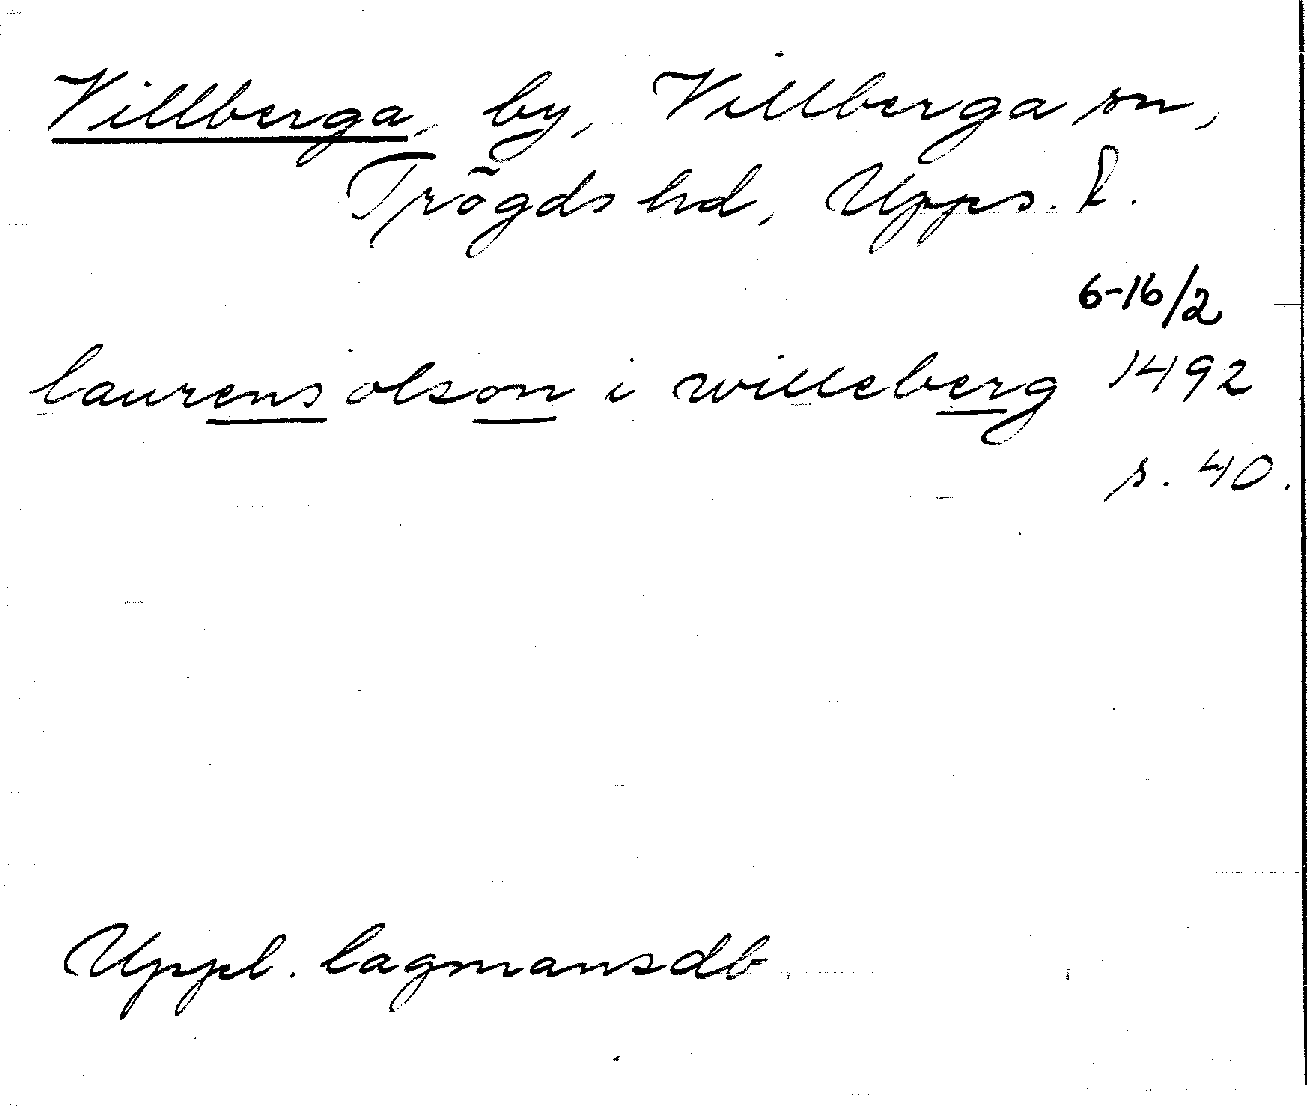 Villberga, by, Villberga sn,
Trögds hd, Upps. l.
6-16/2
laurens olson i willeberg 1492
s. 40.
Uppl. lagmansdb.